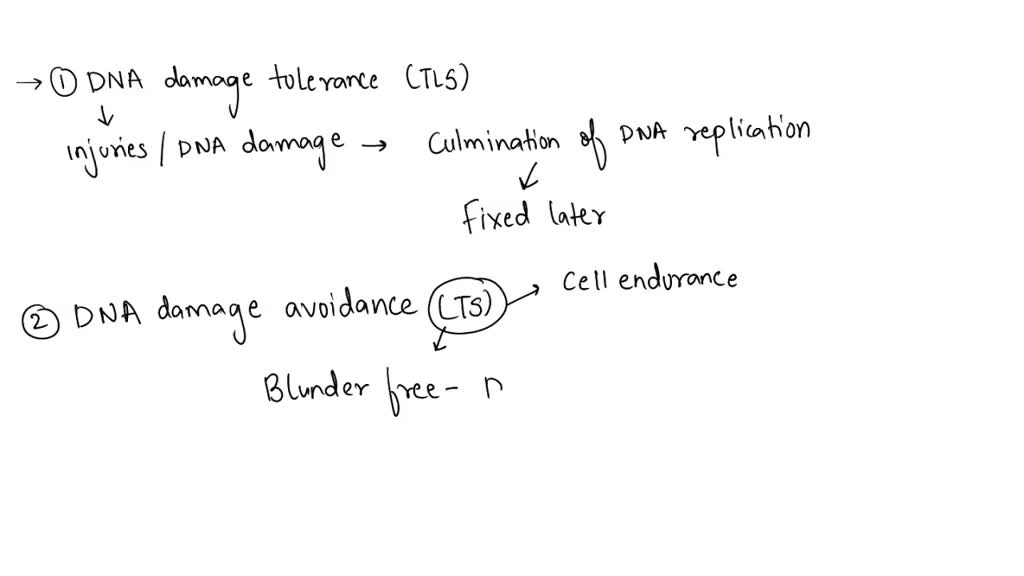 → ① DNA damage tolerance (TLS)
↓
injuries / DNA damage → Culmination of DNA replication
↓
Fixed later
② DNA damage avoidance (TS) → Cell endurance
↓
Blunder free - n